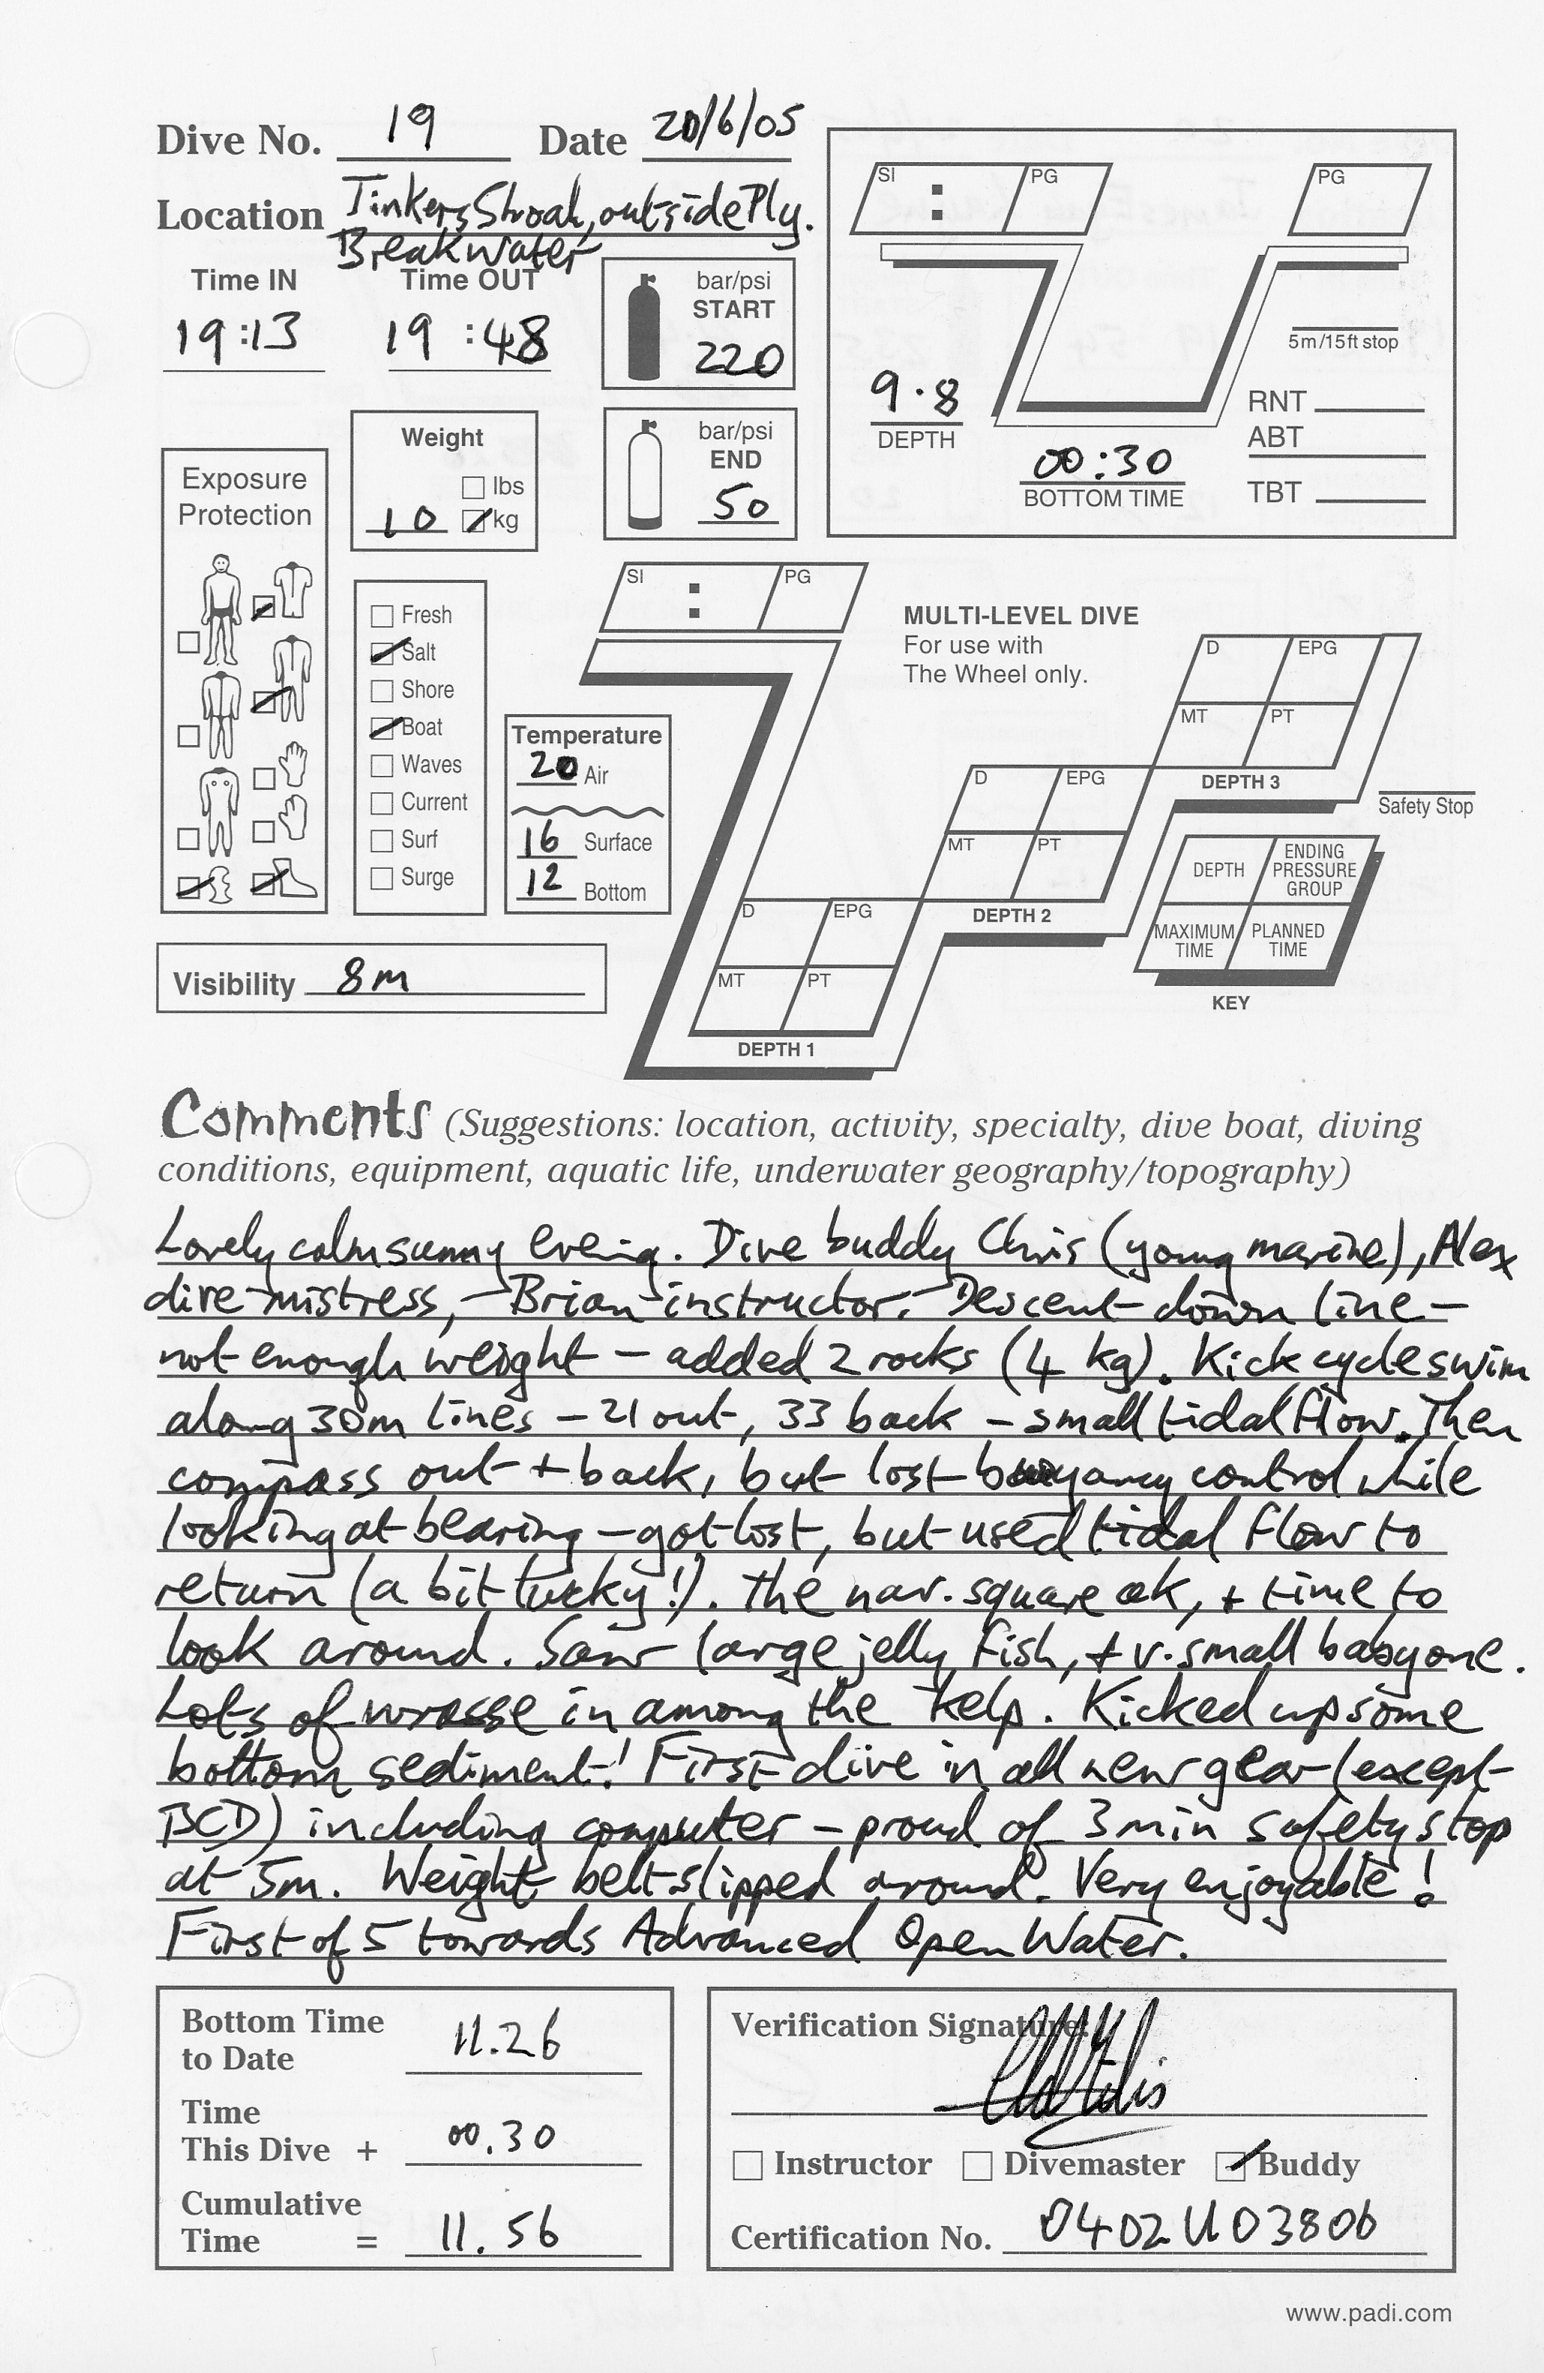 Dive No. 19 Date 20/6/05
Location Tinkers Shoal, outside Ply.
Breakwater
Time IN Time OUT
19:13 19:48
bar/psi
START
220
bar/psi
END
50
Weight
lbs
10 kg
Exposure
Protection
Fresh
Salt
Shore
Boat
Waves
Current
Surf
Surge
Temperature
20 Air
16 Surface
12 Bottom
Visibility 8m
SI : PG
PG
5m/15ft stop
9.8
DEPTH
00:30
BOTTOM TIME
RNT
ABT
TBT
SI : PG
MULTI-LEVEL DIVE
For use with
The Wheel only.
D EPG
MT PT
DEPTH 3
Safety Stop
D EPG
MT PT
DEPTH 2
D EPG
MT PT
DEPTH 1
DEPTH
ENDING
PRESSURE
GROUP
MAXIMUM
TIME
PLANNED
TIME
KEY
Comments (Suggestions: location, activity, specialty, dive boat, diving
conditions, equipment, aquatic life, underwater geography/topography)
Lovely calm sunny eveing. Dive buddy Chris (young marine), Alex
dive-mistress, Brian instructor. Descent down line -
not enough weight - added 2 rocks (4 kg). Kick cycle swim
along 30m lines - 21 out, 33 back - small tidal flow. Then
compass out + back, but lost buoyancy control while
looking at bearing - got lost, but used tidal flow to
return (a bit lucky!). The nav. square ok, + time to
look around. Saw large jelly fish, + v. small baby one.
Lots of wrasse in among the kelp. Kicked up some
bottom sediment! First dive in all new gear (except
BCD) including computer - proud of 3 min safety stop
at 5m. Weight belt slipped around. Very enjoyable!
First of 5 towards Advanced Open Water.
Bottom Time
to Date 11.26
Time
This Dive + 00.30
Cumulative
Time = 11.56
Verification Signature:
Instructor Divemaster Buddy
Certification No. 0402U03806
www.padi.com